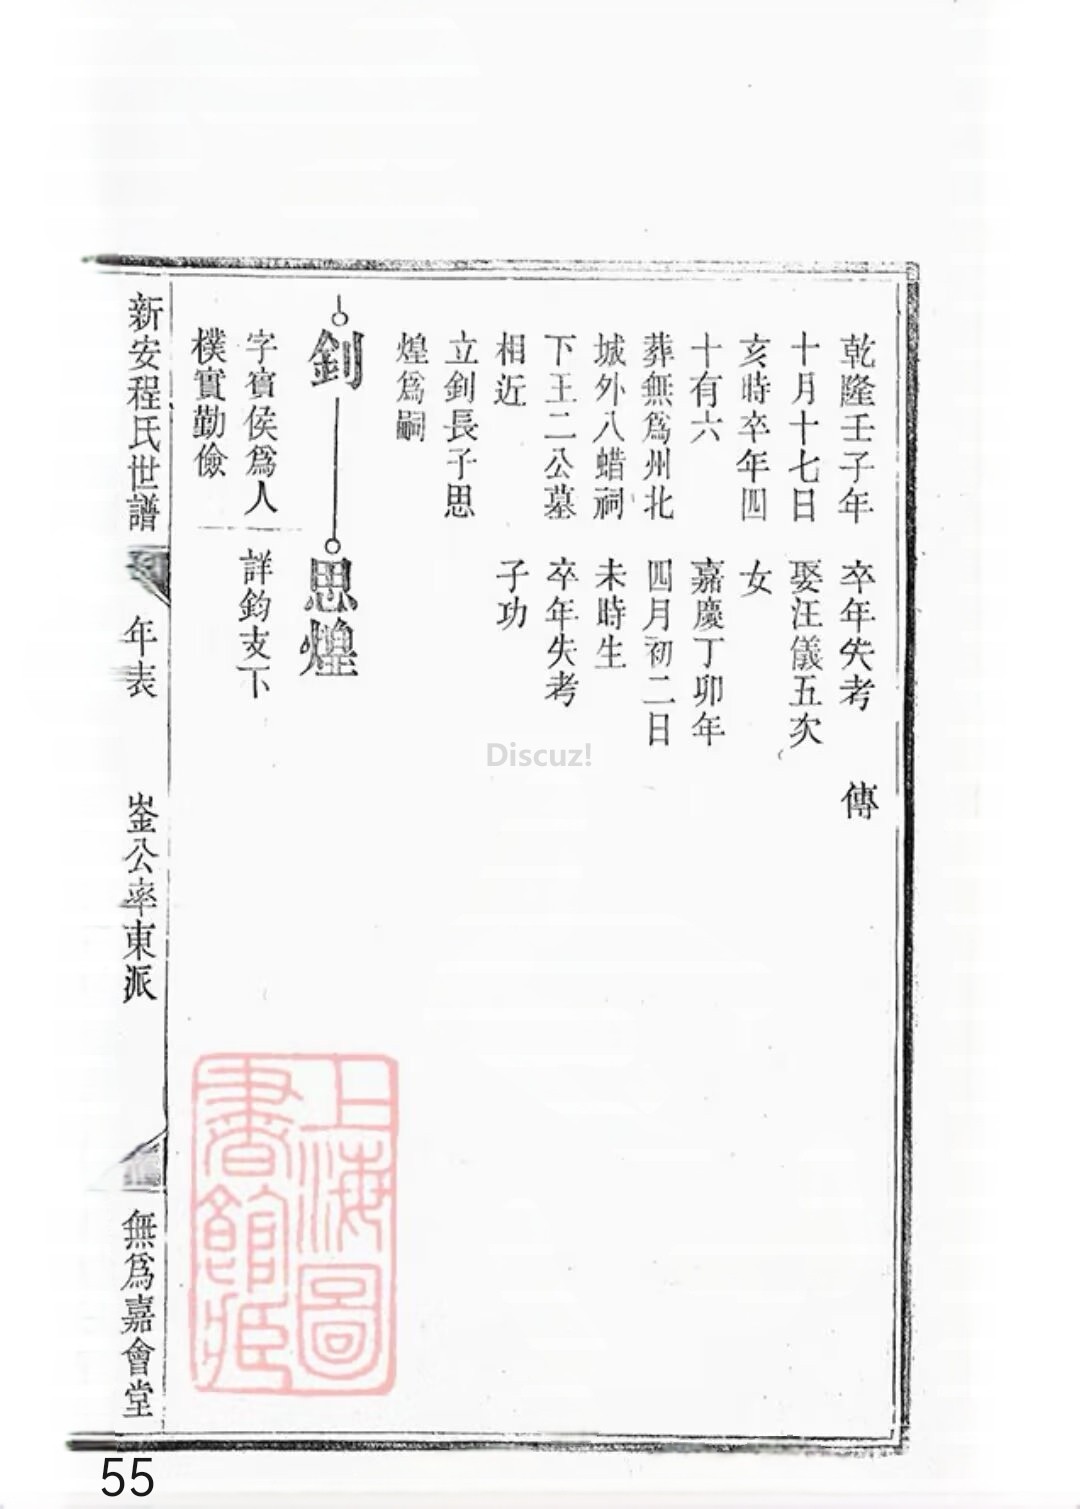 乾隆壬子年
十月十七日
亥時卒年四
十有六
葬無爲州北
城外八蜡祠
下王二公墓
相近
立釗長子思
煌爲嗣
卒年失考
娶汪儀五次
女
嘉慶丁卯年
四月初二日
未時生
卒年失考
子功
傳
釗
字賓侯爲人
樸實勤儉
思煌
詳鈞支下
新安程氏世譜
年表
崟公率東派
無爲嘉會堂
上海圖
書館藏
Discuz!
55